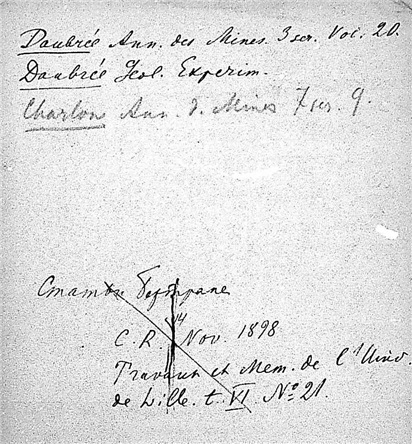 Daubrée Ann. des Mines. 3 ser. Vol. 20.
Daubrée Geol. Experim.
Charlon Ann. d. Mines 7 ser. 9.
Статьи Бертране
14
C. R. Nov. 1898
Travaux et Mem. de l'Univ.
de Lille. t. VI No 21.